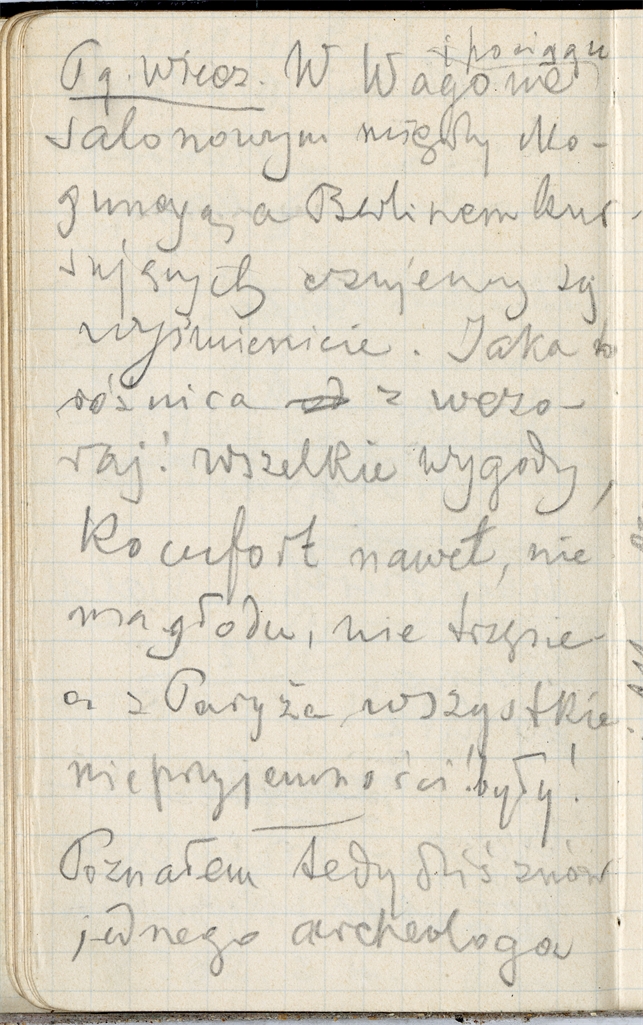 i pociągu
Pq. wiecz. W Wagonie
salonowym między Mo-
guncyą, a Berlinem kur-
sujących czujemy się
wyśmienicie. Jaka to
różnica z wczo-
raj! wszelkie wygody,
Komfort nawet, nie
ma głodu, nie trzęsie
a z Paryża wszystkie
nieprzyjemności były!
Poznałem tedy dziś znów
jednego archeologa